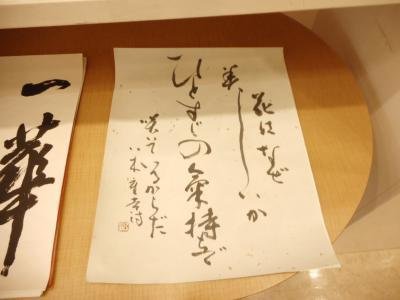 花はなぜ
美しいか
ひとすじの気持ちで
咲いているからだ
八木重吉詩
一華